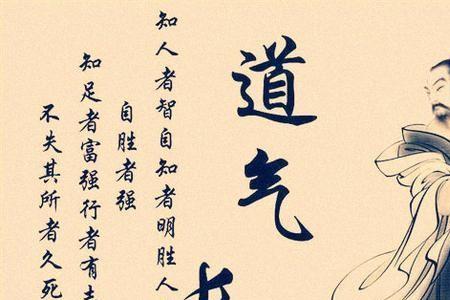 道气
知人者智自知者明胜人
自胜者强
知足者富强行者有
不失其所者久死